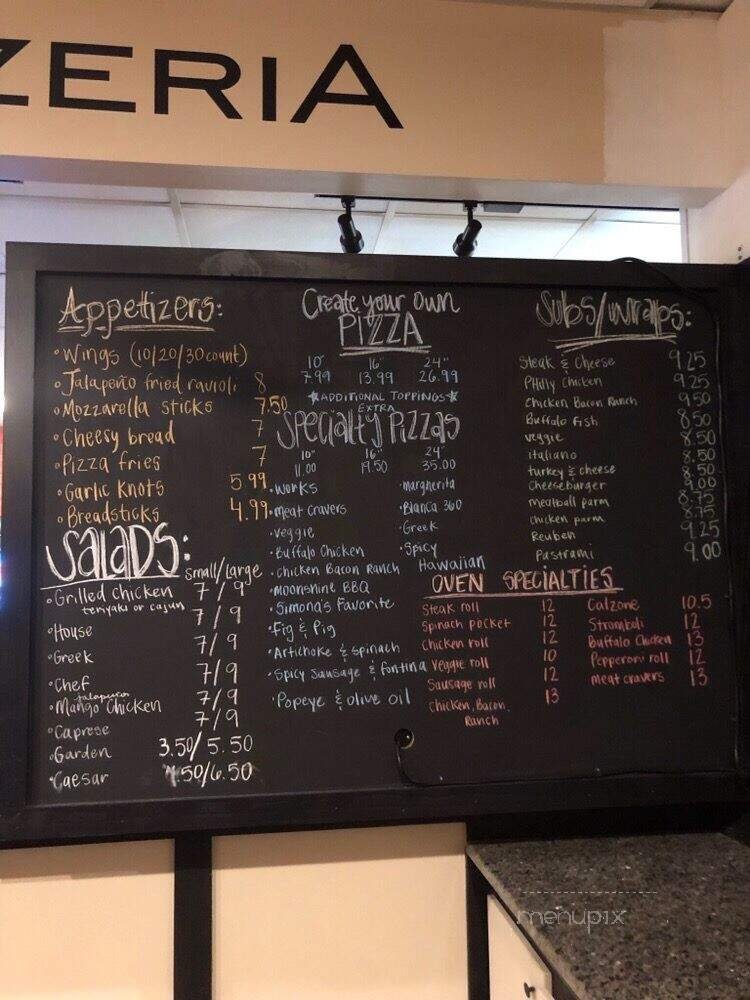 ZERIA
Appetizers:
•Wings (10/20/30count)
•Jalapeño fried ravioli 8
•Mozzarella sticks 7.50
•Cheesy bread 7
•Pizza fries 7
•Garlic Knots 5.99
•Breadsticks 4.99
Salads: Small/Large
•Grilled chicken 7/9
teriyaki or cajun
•House 7/9
•Greek 7/9
•Chef 7/9
•Mango Chicken 7/9
•Caprese 7/9
•Garden 3.50/5.50
•Caesar 4.50/6.50
Create your Own
PIZZA
10" 16" 24"
7.99 13.99 26.99
★ADDITIONAL TOPPINGS★
EXTRA
Specialty Pizzas
10" 16" 24"
11.00 19.50 35.00
•Works
•Meat Cravers
•Veggie
•Buffalo Chicken
•Chicken Bacon Ranch
•Moonshine BBQ
•Simona's Favorite
•Fig & Pig
•Artichoke & spinach
•Spicy Sausage & fontina
•Popeye & olive oil
•Margherita
•Blanca 360
•Greek
•Spicy
Hawaiian
Subs/Wraps:
Steak & Cheese 9.25
Philly Chicken 9.25
Chicken Bacon Ranch 9.50
Buffalo Fish 8.50
Veggie 8.50
italiano 8.50
turkey & cheese 8.50
Cheeseburger 9.00
meatball parm 8.75
chicken parm 8.75
Reuben 9.25
Pastrami 9.00
OVEN SPECIALTIES
Steak roll 12
Spinach pocket 12
Chicken roll 12
Veggie roll 10
Sausage roll 12
Chicken, Bacon, 13
Ranch
Calzone 10.5
Stromboli 12
Buffalo Chicken 13
Pepperoni roll 12
Meat cravers 13
menupix